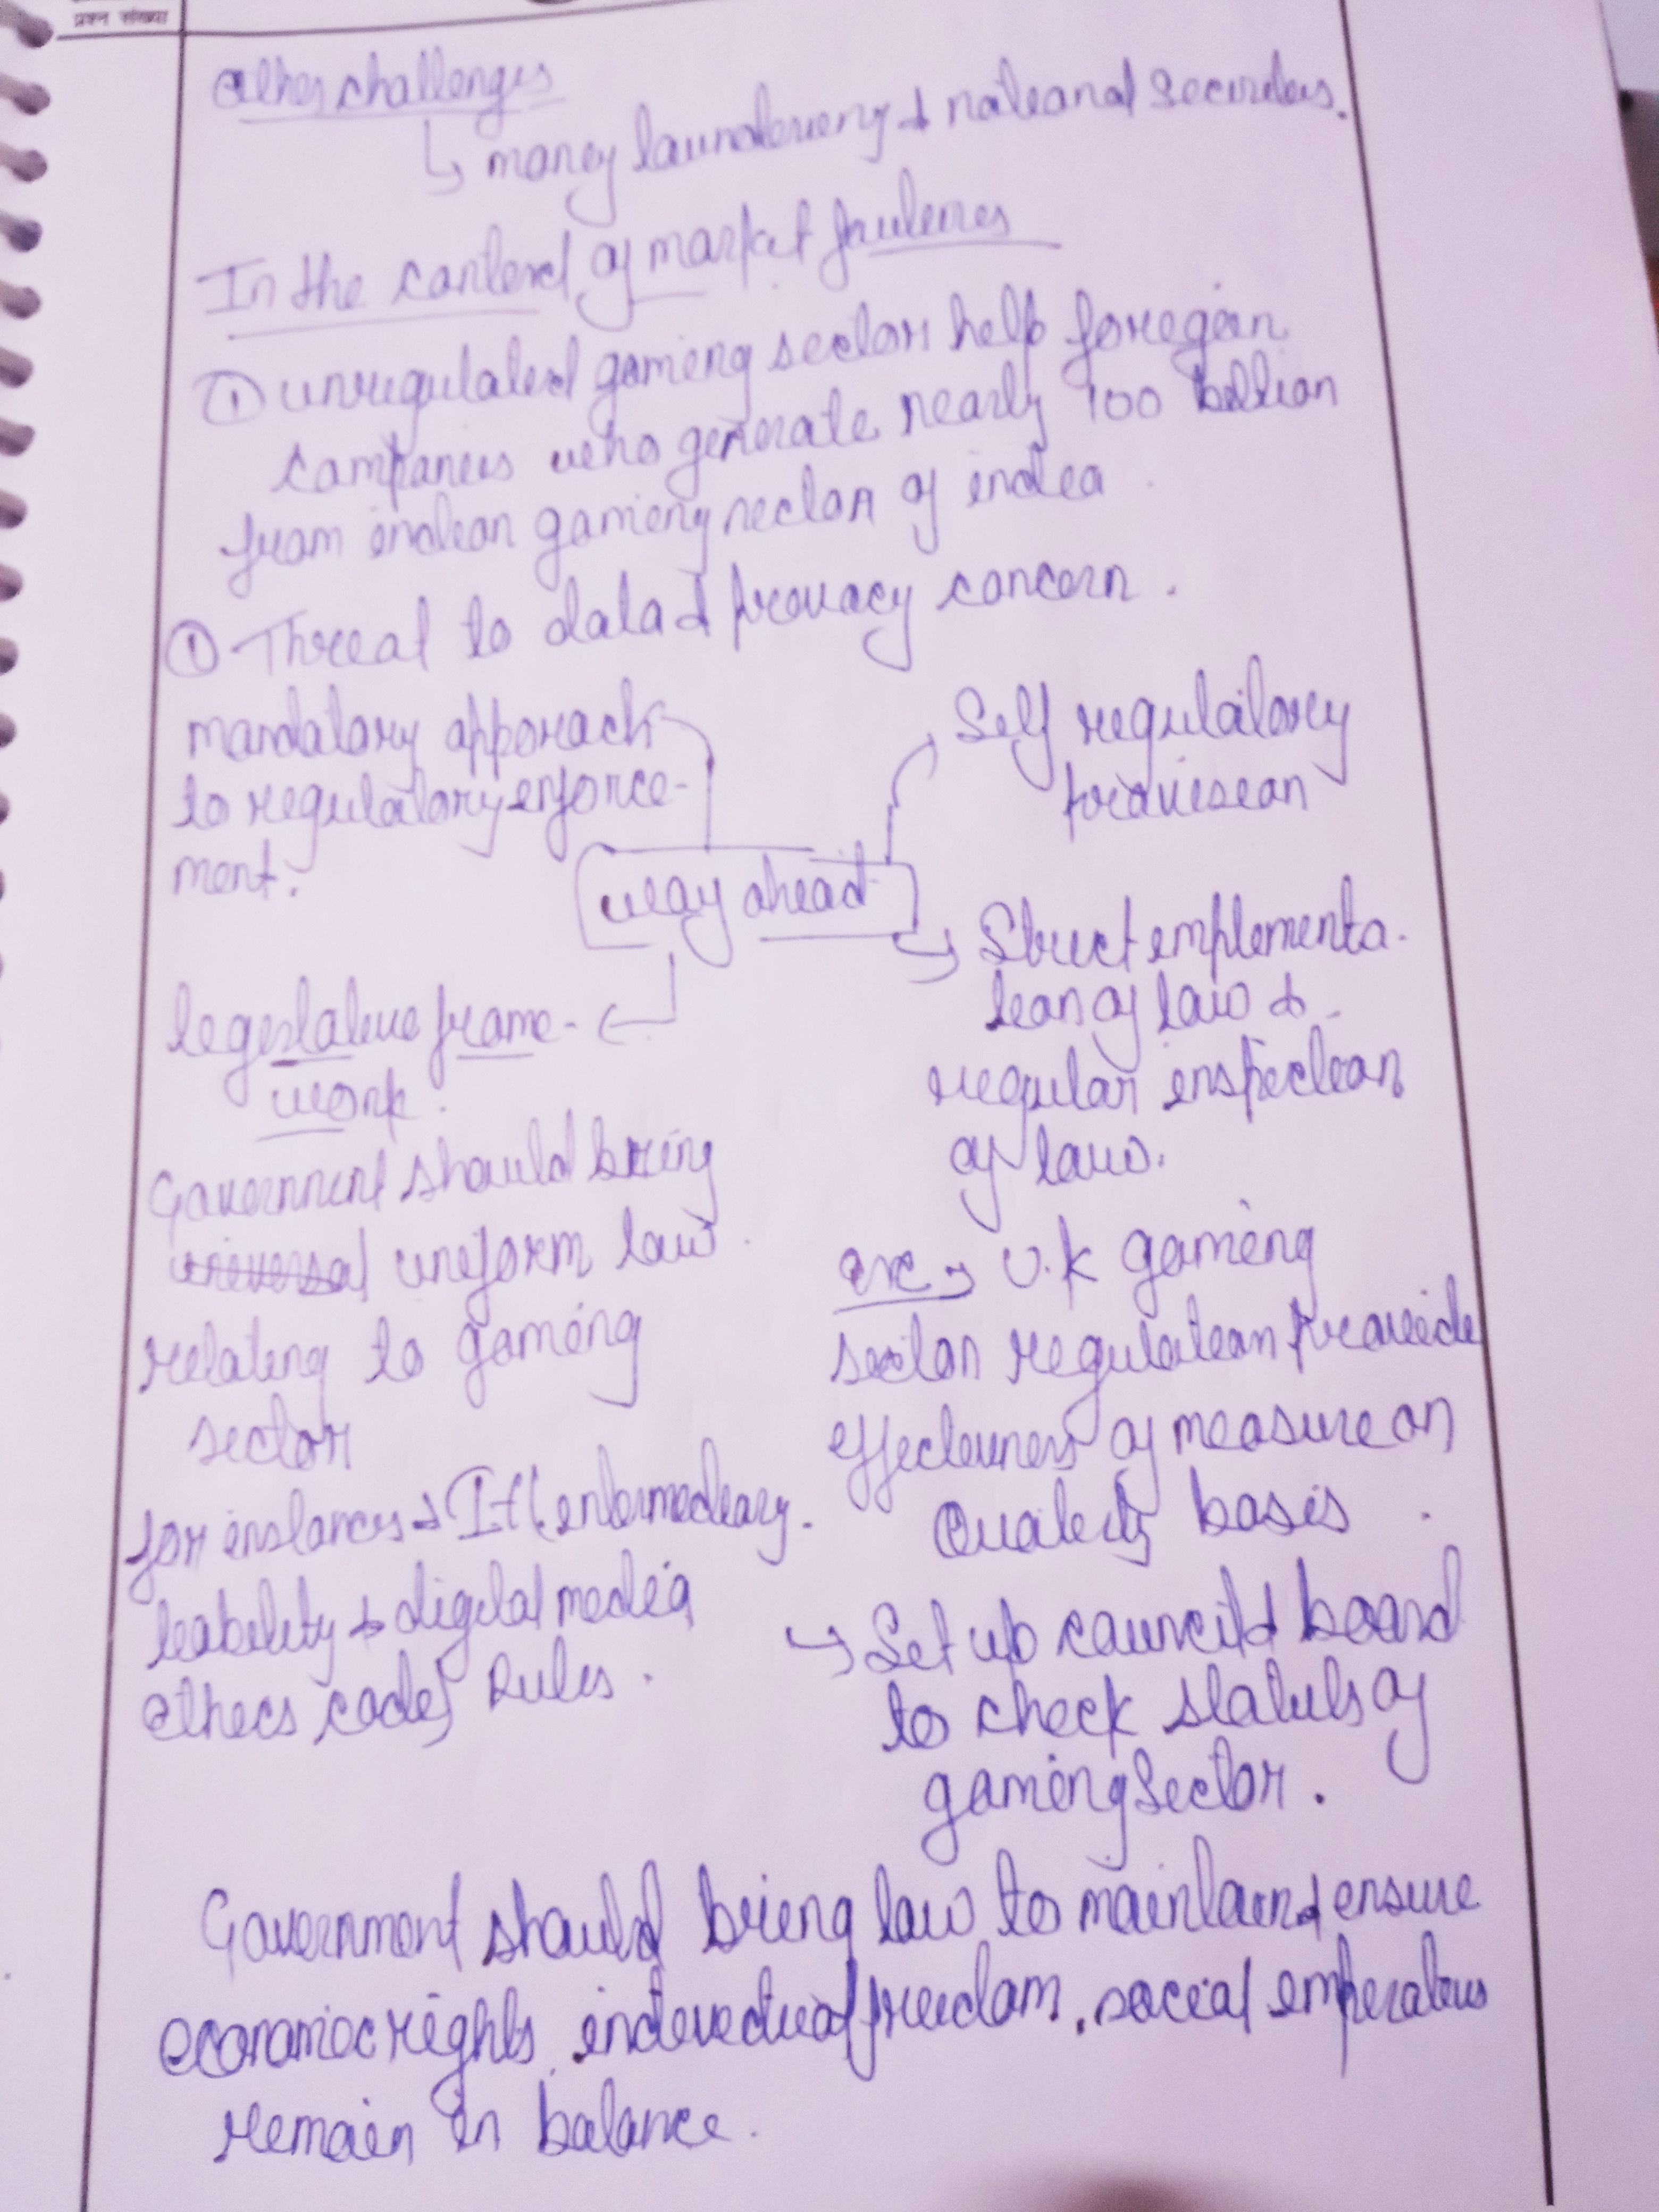 प्रश्न संख्या
Other challenges
↳ money laundering & national securities.
In the context of market failures
① unregulated gaming sector help foregein
companies who generate nearly 100 billion
from indian gaming sector of india.
① Threat to data & privacy concern.
mandatory apporach
to regulatory enforce-
ment.
Self regulatory
provision
way ahead
legislative frame-
work.
Government should bring
universal uniform law
relating to gaming
sector
for instances → IT (intermediary
liability & digital media
ethics code) Rules.
→ Strict implementa-
tion of law &
regular inspection
of law.
→ U.K gaming
sector regulation provide
effectiveness of measure on
Quality basis.
↳ Set up council & board
to check status of
gaming sector.
Government should bring law to maintain & ensure
economic rights, individual freedom, social imperatives
remain in balance.